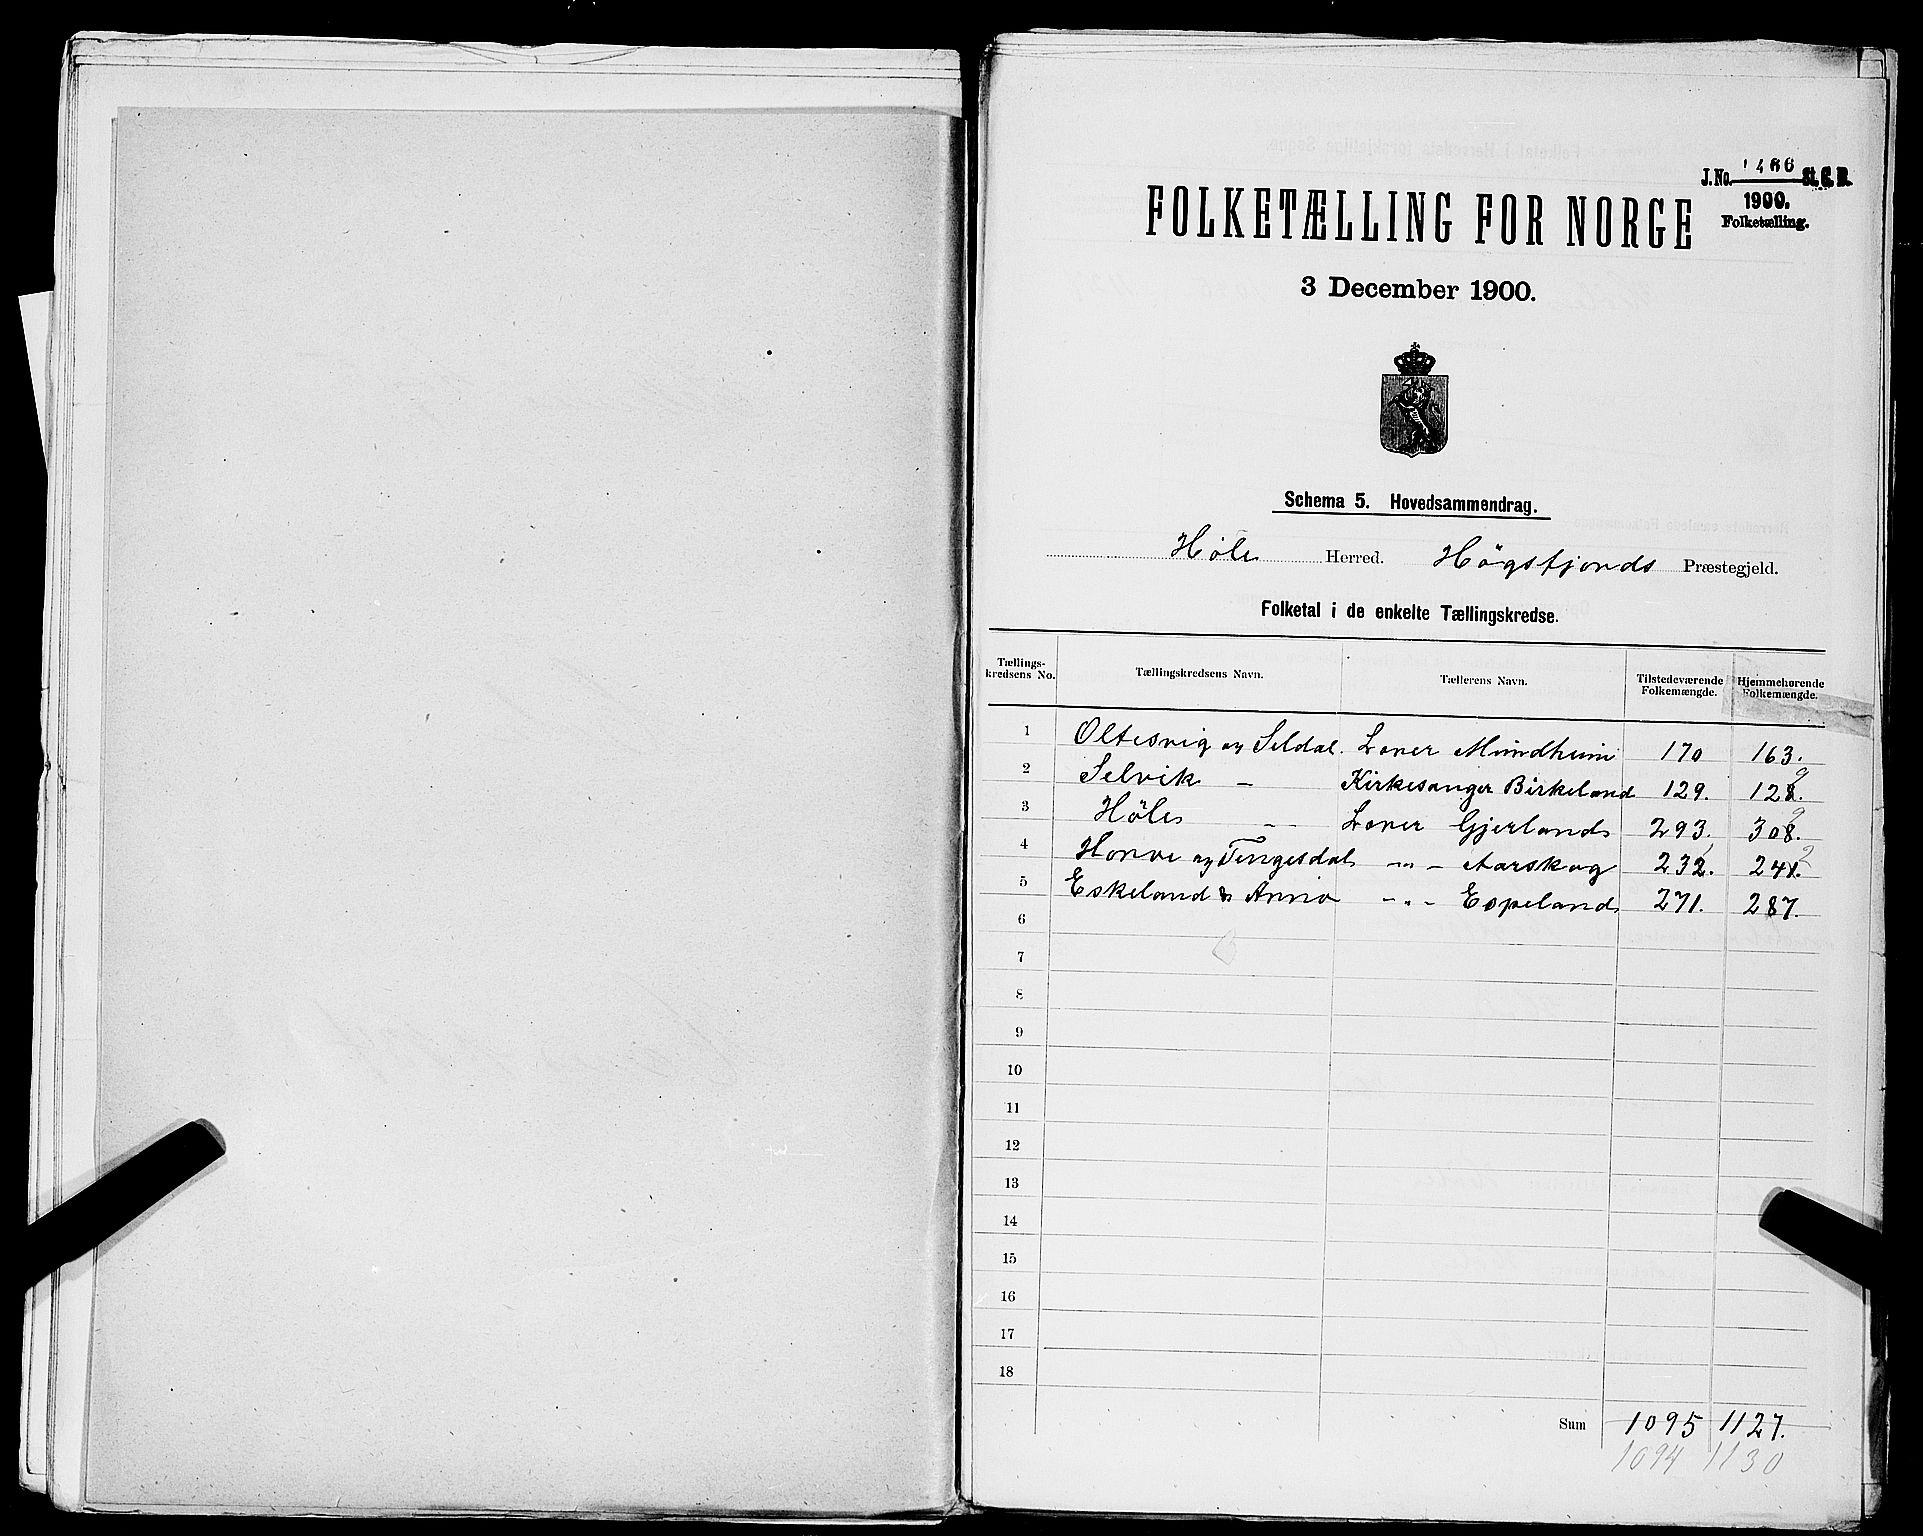 J.No. 1466 St. C. B.
1900.
Folketælling.
FOLKETÆLLING FOR NORGE
3 December 1900.
Schema 5. Hovedsammendrag.
Høle Herred. Högsfjords Præstegjeld.
Folketal i de enkelte Tællingskredse.
Tællingskredsens No. Tællingskredsens Navn. Tællerens Navn. Tilstedeværende Folkemængde. Hjemmehørende Folkemængde.
1 Oltesvig og Seldal. Lærer Mundheim 170 163.
2 Selvik — Kirkesanger Birkeland 129. 128. 9
3 Höle — Lærer Gjerlands 293. 308. 9
4 Honve og Tengesdal -"- Aarskog 232. 241. 2
5 Eskeland & Annio -"- Espeland 271. 287.
6
7
8
9
10
11
12
13
14
15
16
17
18
Sum 1095 1127.
1094 1130